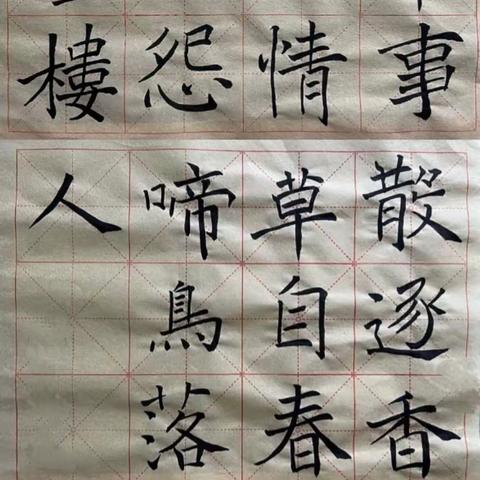 事散逐香
情草自春
怨啼鳥落
樓人